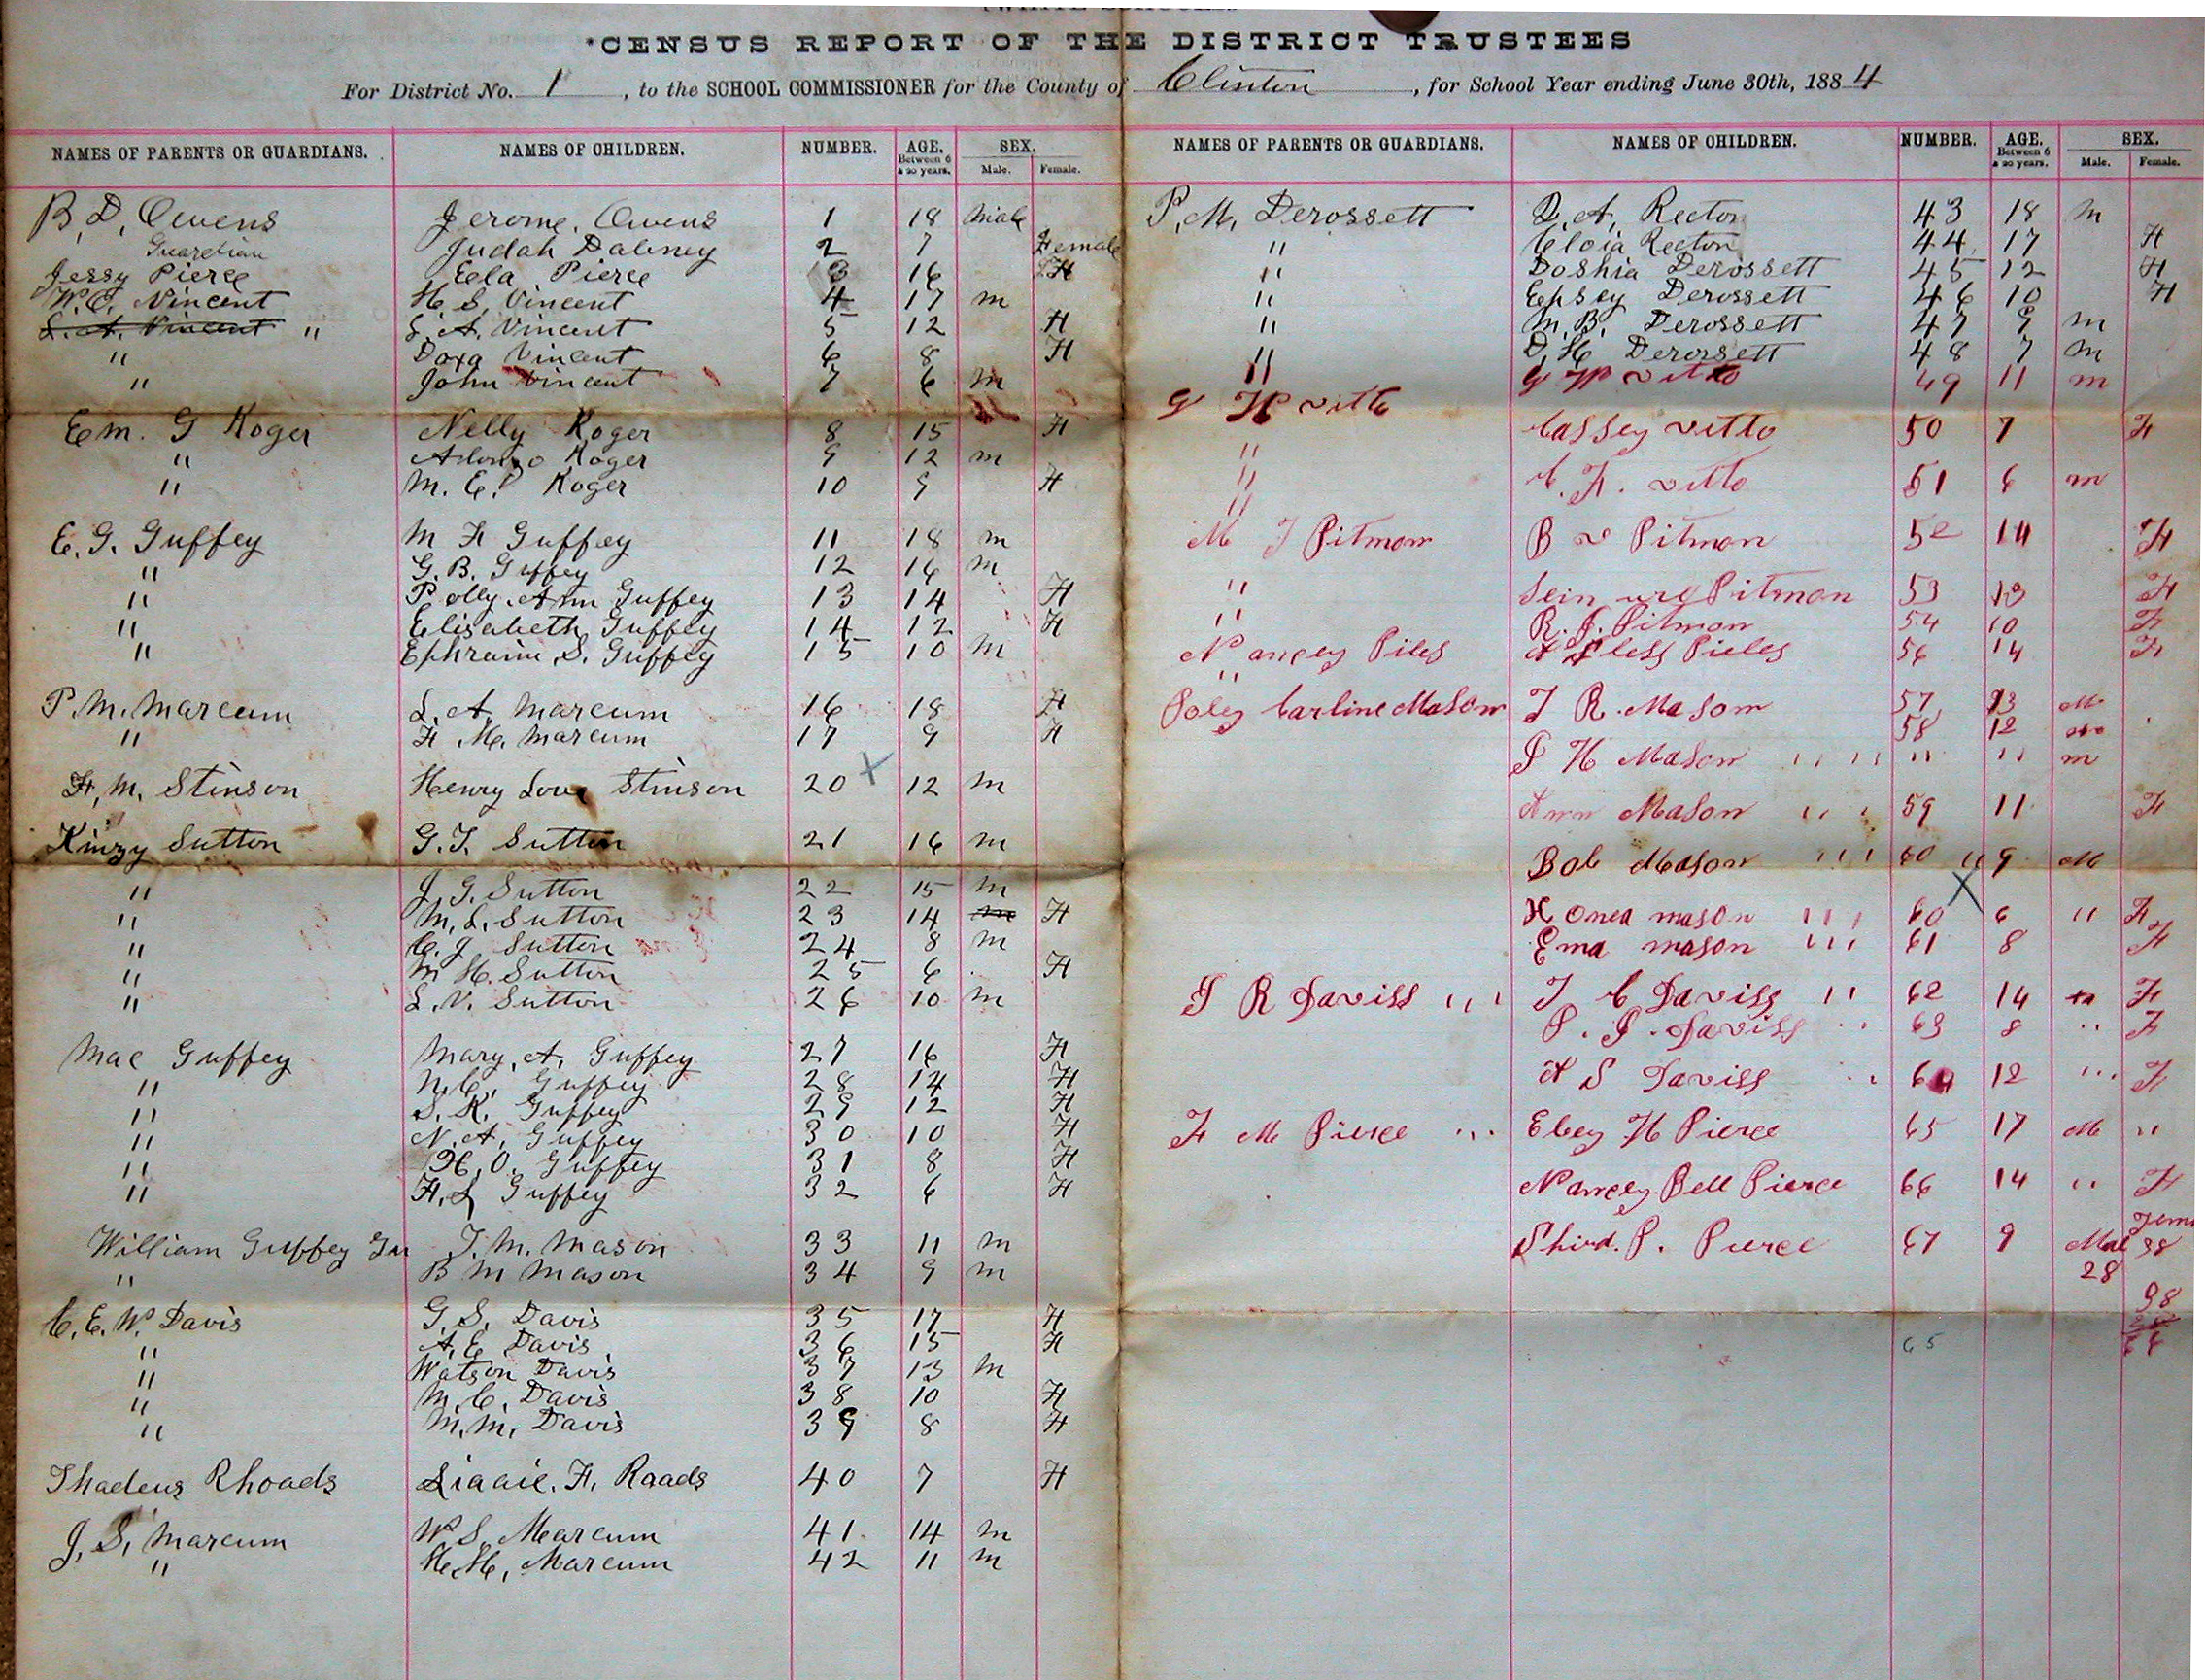 (WHITE SCHOOLS.)
CENSUS REPORT OF THE DISTRICT TRUSTEES
For District No. 1, to the SCHOOL COMMISSIONER for the County of Clinton, for School Year ending June 30th, 1884
NAMES OF PARENTS OR GUARDIANS. NAMES OF CHILDREN. NUMBER. AGE. Between 6 & 20 years. SEX. Male. Female.
B. D. Owens Jerome Owens 1 18 Male
Guardian Judah Dabney 2 7 Female
Jessy Pierce Ela Pierce 3 16 F
W. C. Vincent H. S. Vincent 4 17 m
L. A. Vincent " L. A. Vincent 5 12 F
" Doxa Vincent 6 8 F
" John Vincent 7 6 m
Em. G Koger Nelly Koger 8 15 F
" Alonzo Koger 9 12 m
" M. E. Koger 10 9 F
E. G. Guffey M F Guffey 11 18 m
" G. B. Guffey 12 16 m
" Polly Ann Guffey 13 14 F
" Elisabeth Guffey 14 12 F
" Ephraim S. Guffey 15 10 m
P. M. Marcum L. A. Marcum 16 18 F
" F. M. Marcum 17 9 F
F. M. Stinson Henry Love Stinson 20 x 12 m
Kinzy Sutton G. T. Sutton 21 16 m
" J. G. Sutton 22 15 m
" M. L. Sutton 23 14 m F
" C. J. Sutton 24 8 m
" M H. Sutton 25 6 F
" L. V. Sutton 26 10 m
Mac Guffey Mary. A. Guffey 27 16 F
" N. C. Guffey 28 14 F
" S. K. Guffey 29 12 F
" N. A. Guffey 30 10 F
" H. O. Guffey 31 8 F
" F. L Guffey 32 6 F
William Guffey Gu T. M. Mason 33 11 m
" B M Mason 34 9 m
C. E. W. Davis G. S. Davis 35 17 F
" A. E Davis 36 15 F
" Watson Davis 37 13 m
" M. C. Davis 38 10 F
" M. M. Davis 39 8 F
Thadeus Rhoads Lizzie. F. Roads 40 7 F
J. S. Marcum W S. Marcum 41 14 m
" H. H. Marcum 42 11 m
NAMES OF PARENTS OR GUARDIANS. NAMES OF CHILDREN. NUMBER. AGE. Between 6 & 20 years. SEX. Male. Female.
P. M. Derossett D. A. Rector 43 18 m
" Cloia Rector 44 17 F
" Doshia Derossett 45 12 F
" Epsey Derossett 46 10 F
" M. B. Derossett 47 9 m
" D. H. Derossett 48 7 m
" G W vitto 49 11 m
G H vitto
" Cassey vitto 50 7 F
" C. F. vitto 51 6 m
"
M J Pitmon B v Pitmon 52 14 F
" Pitmon 53 13 F
" R. J. Pitmon 54 10 F
Nancy Piles Pieles 56 14 F
"
Poley Carline Mason J R. Mason 57 13 M
58 12
J H Mason " " " " m
Ann Mason " 59 11 F
Bob Mason " 60 " 9 M
x
H Onea mason " 60 6 " F
Ema mason " 61 8 F
J R Daviss " J C Daviss " 62 14 m F
P. J. Daviss " 63 8 " F
A S Daviss " 64 12 " F
F M Pierce " Eley H Pierce 65 17 M "
Nancy Bell Pierce 66 14 " F
Shird. P. Pierce 67 9 Mal Fem
28 38
38
65